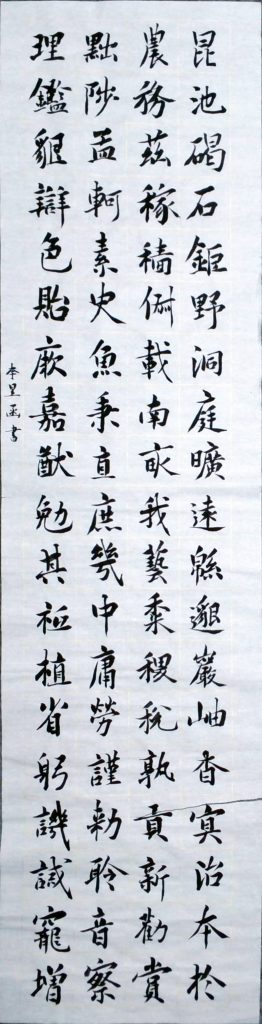 昆池碣石鉅野洞庭曠遠緜邈巖岫杳冥治本於
農務茲稼穡俶載南畝我藝黍稷稅孰貢新勸賞
黜陟孟軻素史魚秉直庶幾中庸勞謹勅聆音察
理鑑貌辯色貽厥嘉猷勉其祗植省躬譏誡寵增
李昱函書